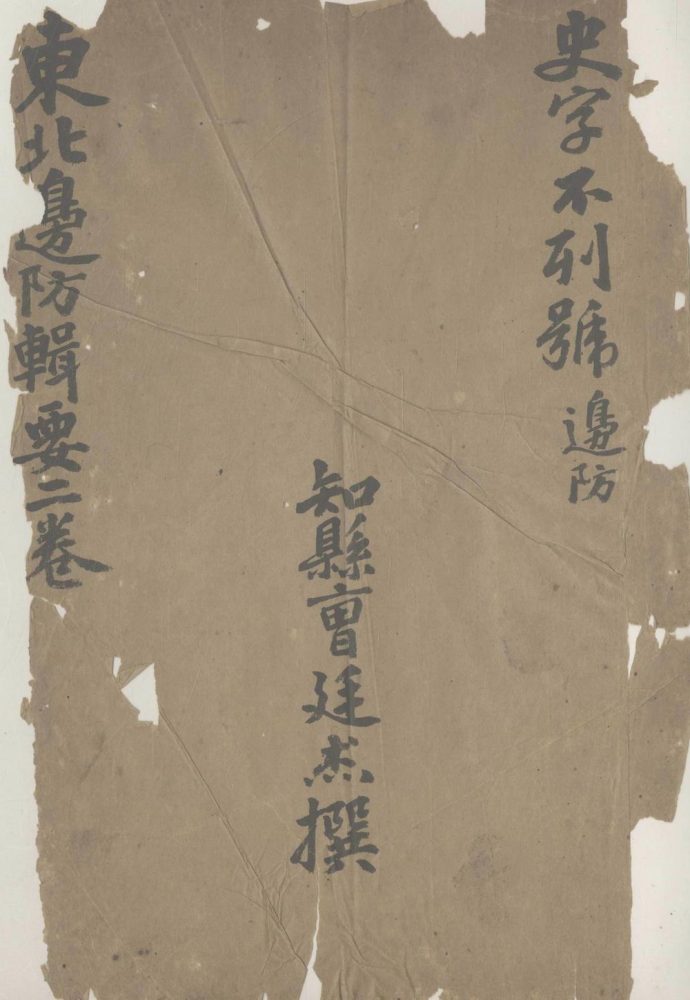 史字不列號 邊防
知縣曹廷杰撰
東北邊防輯要二卷